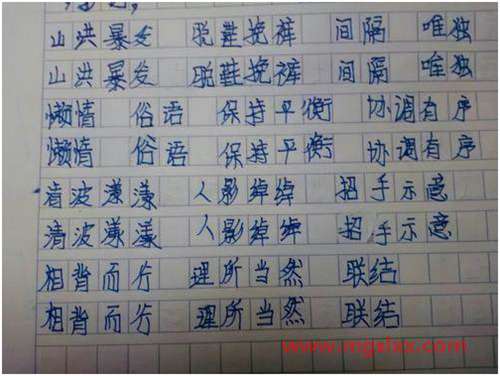 山洪暴发 脱鞋挽裤 间隔 唯独
山洪暴发 脱鞋挽裤 间隔 唯独
懒情 俗语 保持平衡 协调有序
懒情 俗语 保持平衡 协调有序
清波漾漾 人影绰绰 招手示意
清波漾漾 人影绰绰 招手示意
相背而行 理所当然 联结
相背而行 理所当然 联结
www.mgxlxx.com